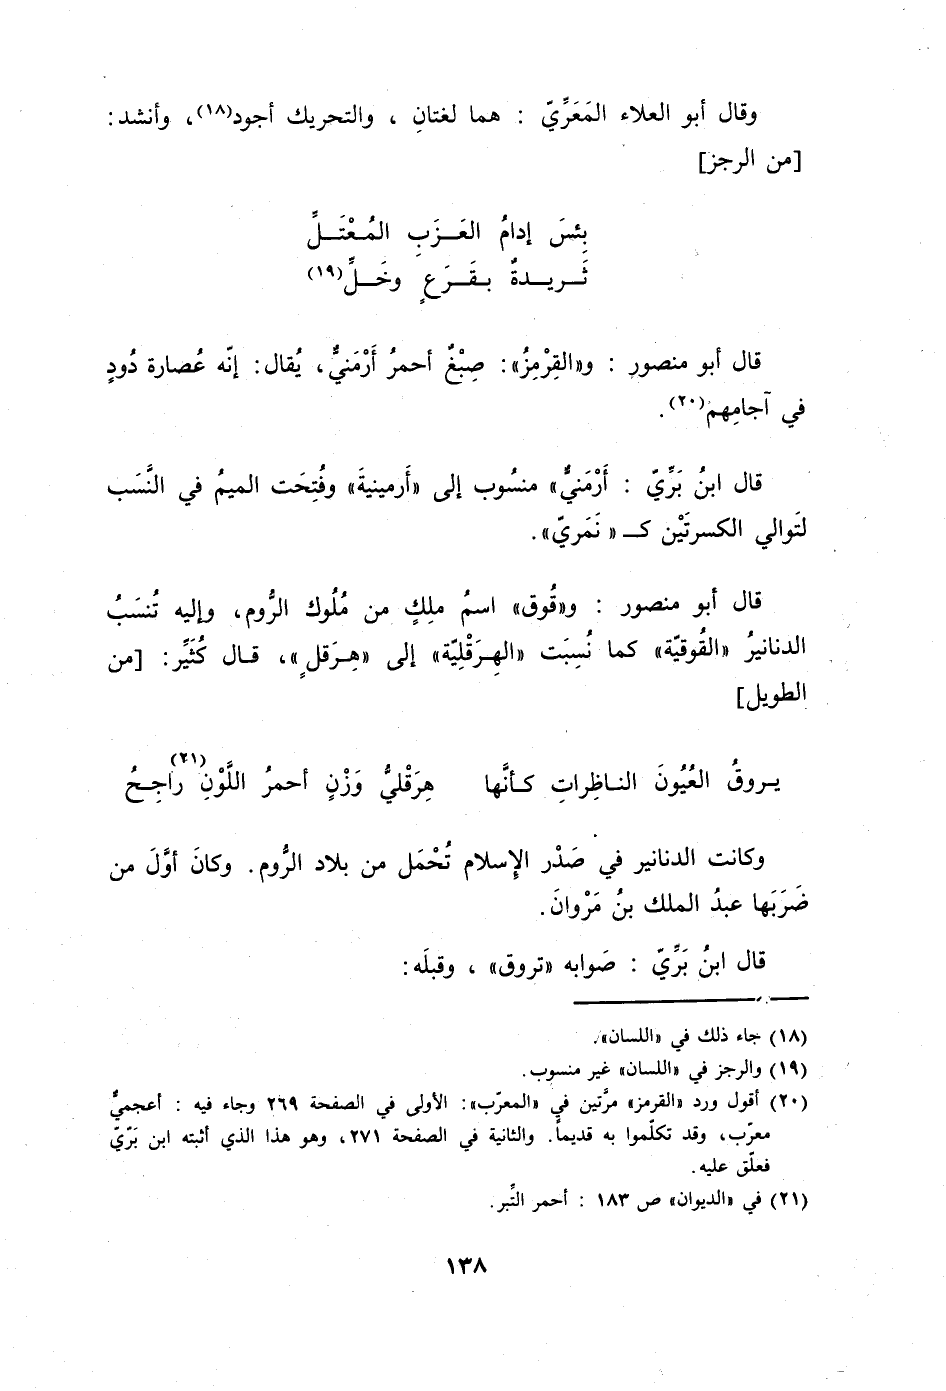 وقال أبو العلاء المَعَرِّيّ : هما لغتانِ ، والتحريك أجود(١٨)، وأنشد:
[من الرجز]
بِئسَ إدامُ العَــزَبِ المُـعْتَــلِّ
ثَــريــدةٌ بـقَــرَعٍ وخَــلِّ(١٩)
قال أبو منصورِ : و«القِرْمِزُ»: صِبْغٌ أحمرُ أَرْمَنيٌّ، يُقال: إنّه عُصارة دُودٍ
في آجامِهم(٢٠).
قال ابنُ بَرِّيّ : أَرْمَنيٌّ» منسُوب إلى «أَرمينيةَ» وفُتِحَت الميمُ في النَّسَب
لتَوالي الكسرتَيْن كــ« نَمَريّ».
قال أبو منصور : و«قُوق» اسمُ ملِكٍ من مُلُوك الرُّوم، وإليه تُنسَبُ
الدنانيرُ «القُوقيّة» كما نُسِبَت «الهِرَقْلِيّة» إلى «هِـرَقلٍ»، قـال كُثَيِّر: [من
الطويل]
يـروقُ العُيُونَ النـاظِراتِ كـأنَّها هِرَقْليُّ وَزْنٍ أحمرُ اللَّوْنِ(٢١) رَاجِـحُ
وكانت الدنانير في صَدْر الإسلام تُحْمَل من بلاد الرُّوم. وكانَ أوَّلَ من
ضَرَبَها عبدُ الملك بنُ مَرْوانَ.
قال ابنُ بَرِّيّ : صَوابه «تروق» ، وقبلَه:
(١٨) جاء ذلك في «اللسان».
(١٩) والرجز في «اللسان» غير منسوب.
(٢٠) أقول ورد «القرمز» مرَّتين في «المعرّب»: الأولى في الصفحة ٢٦٩ وجاء فيه : أعجميٌّ
معرّب، وقد تكلّموا به قديماً. والثانية في الصفحة ٢٧١، وهو هذا الذي أثبته ابن بَرّيّ
فعلّق عليه.
(٢١) في «الديوان» ص ١٨٣ : أحمر التِّبر.
١٣٨